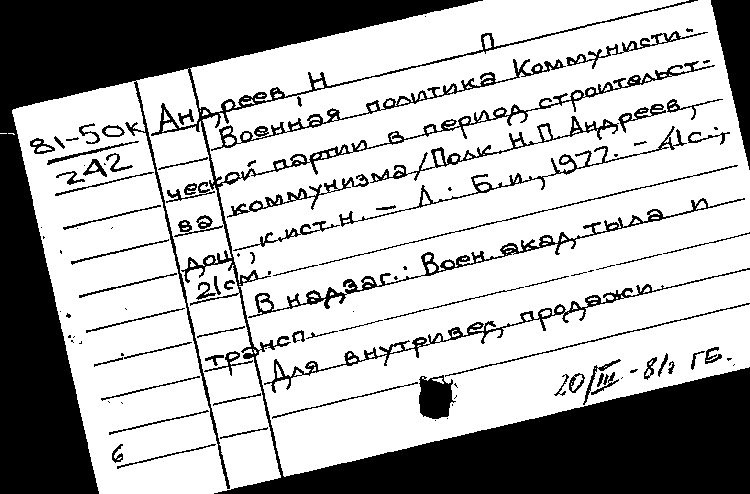 81-50к
242
Андреев, Н П
Военная политика Коммунисти-
ческой партии в период строительст-
ва коммунизма/Полк. Н.П. Андреев,
доц., к.ист.н. – Л.: Б.и., 1977. – 41с.;
21см.
В надзаг.: Воен. акад. тыла и
трансп.
Для внутривед. продажи.
20/III - 81г ГБ.
6